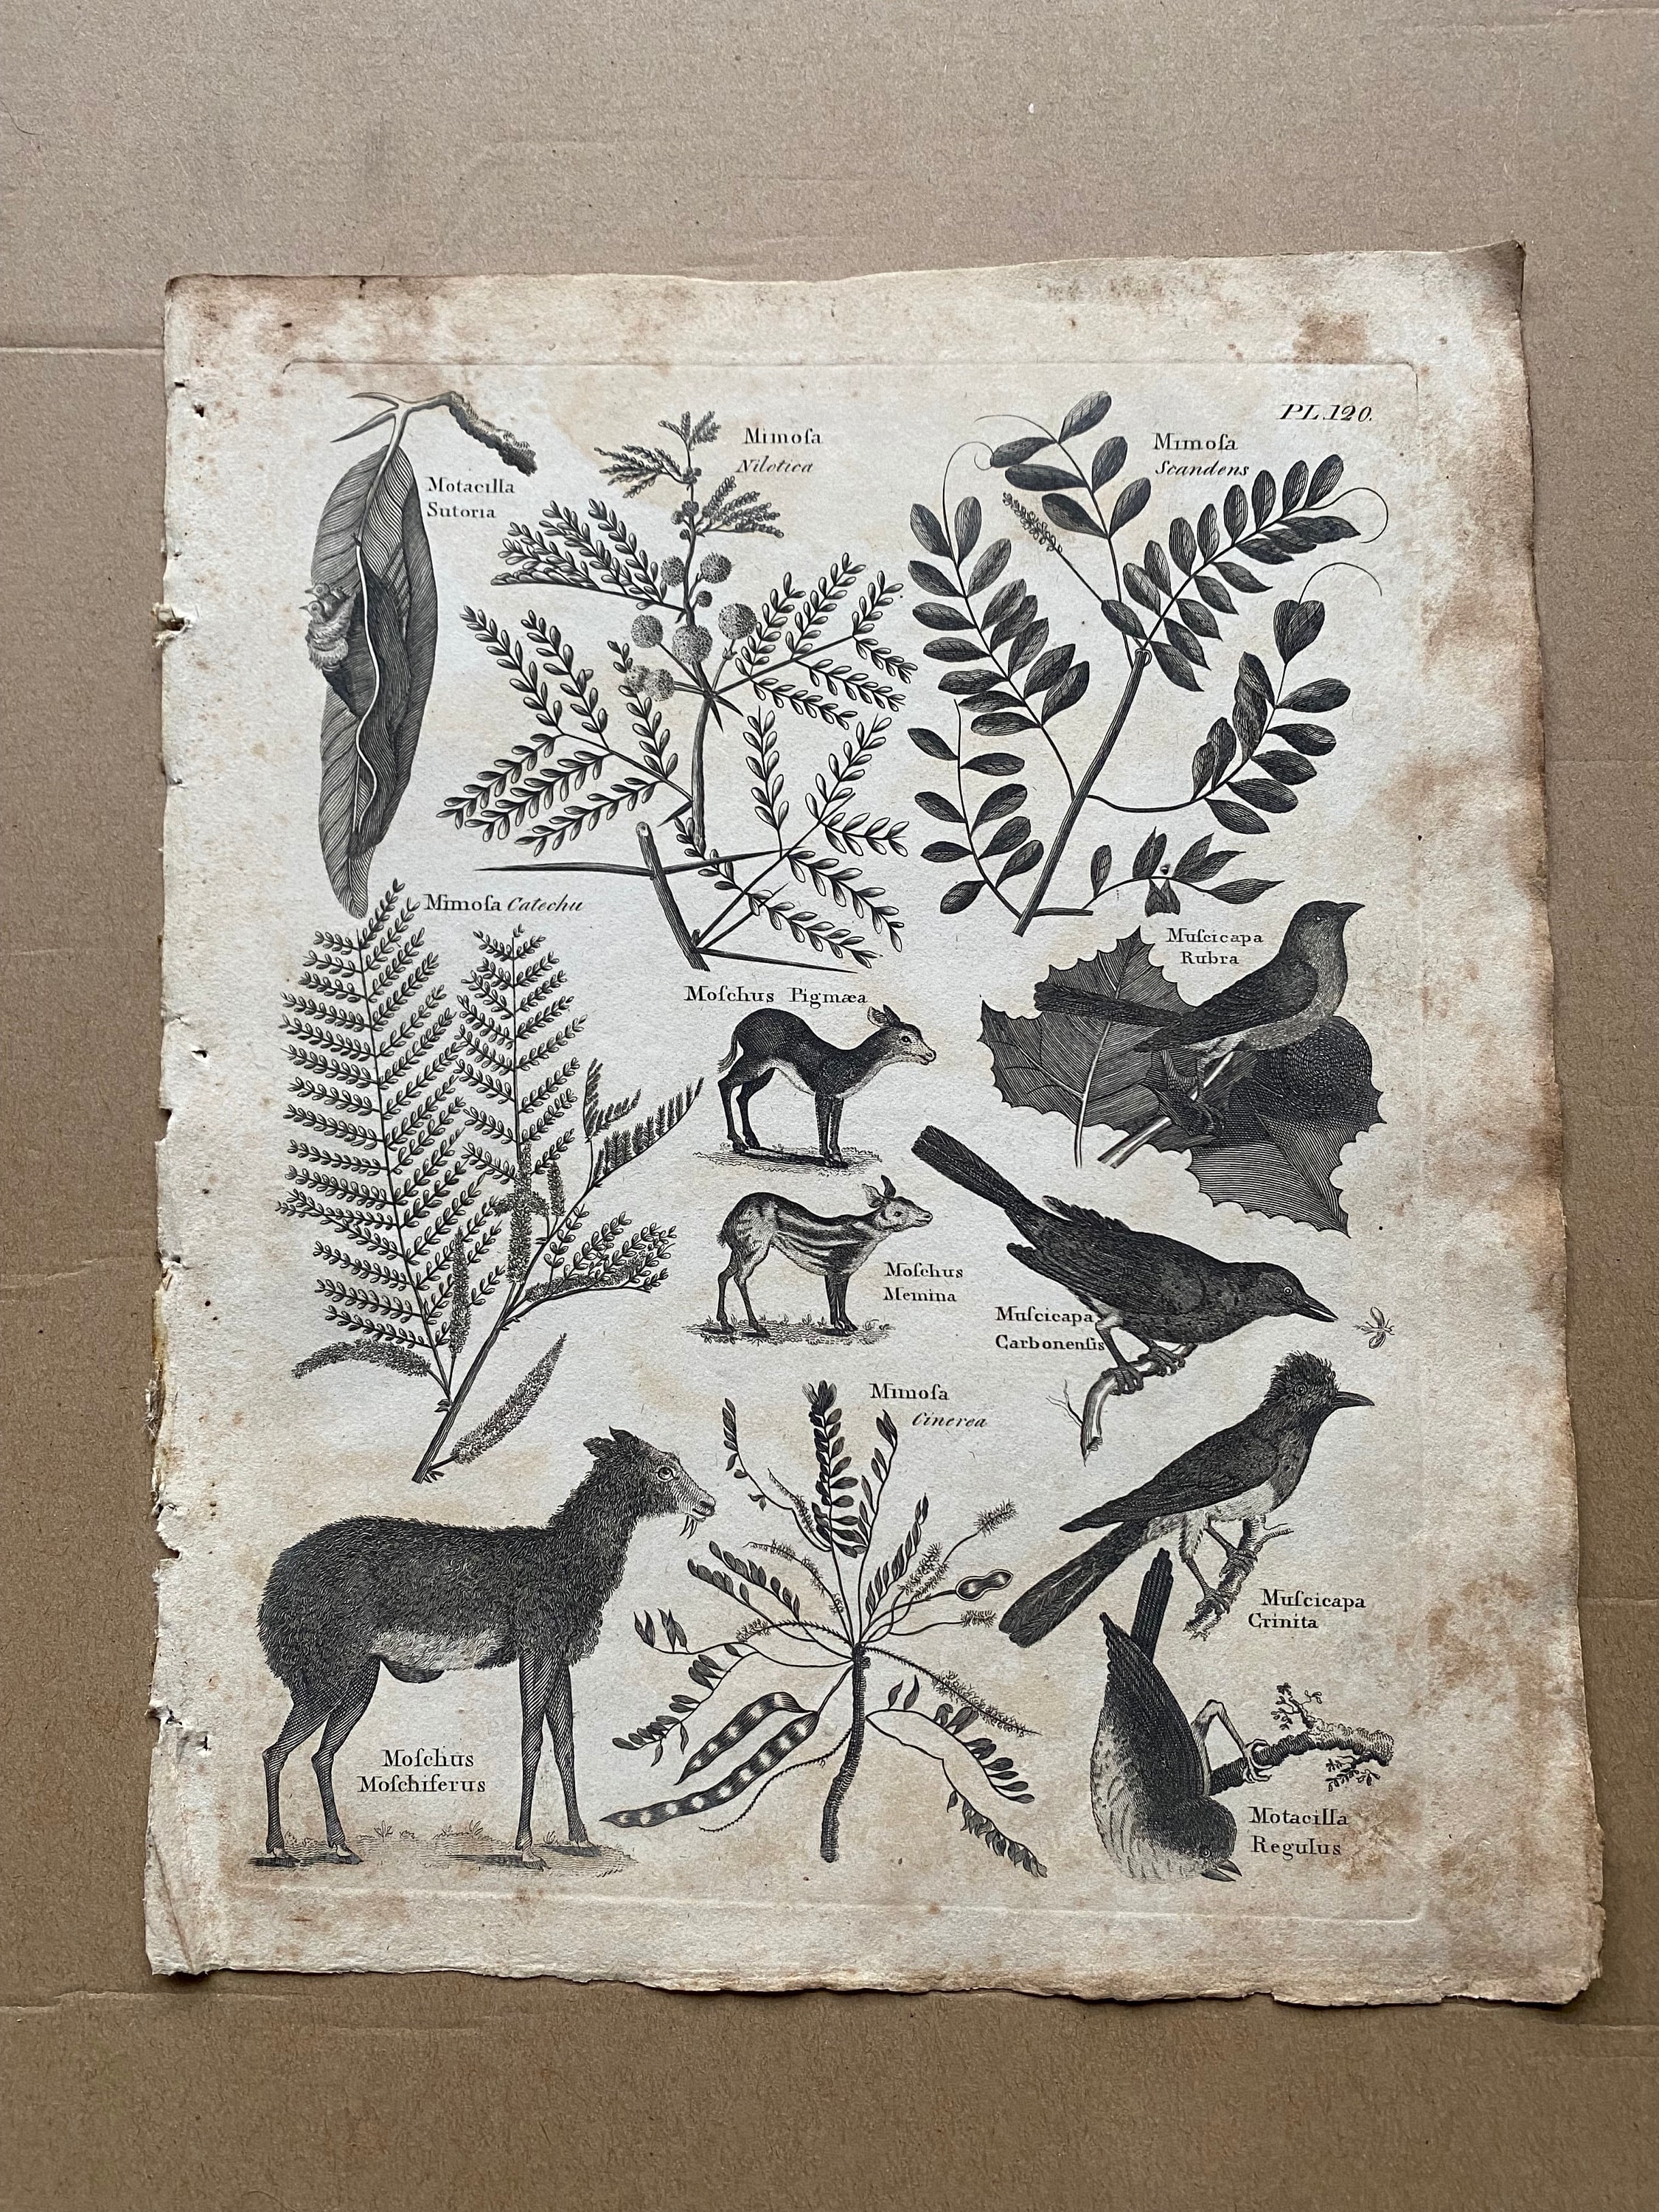 PL.120.
Mimoſa
Nilotica
Mimoſa
Scandens
Motacilla
Sutoria
Mimoſa Catechu
Muſcicapa
Rubra
Moſchus Pigmæa
Moſchus
Memina
Muſcicapa
Carbonenſis
Mimoſa
Cinerea
Muſcicapa
Crinita
Moſchus
Moſchiferus
Motacilla
Regulus